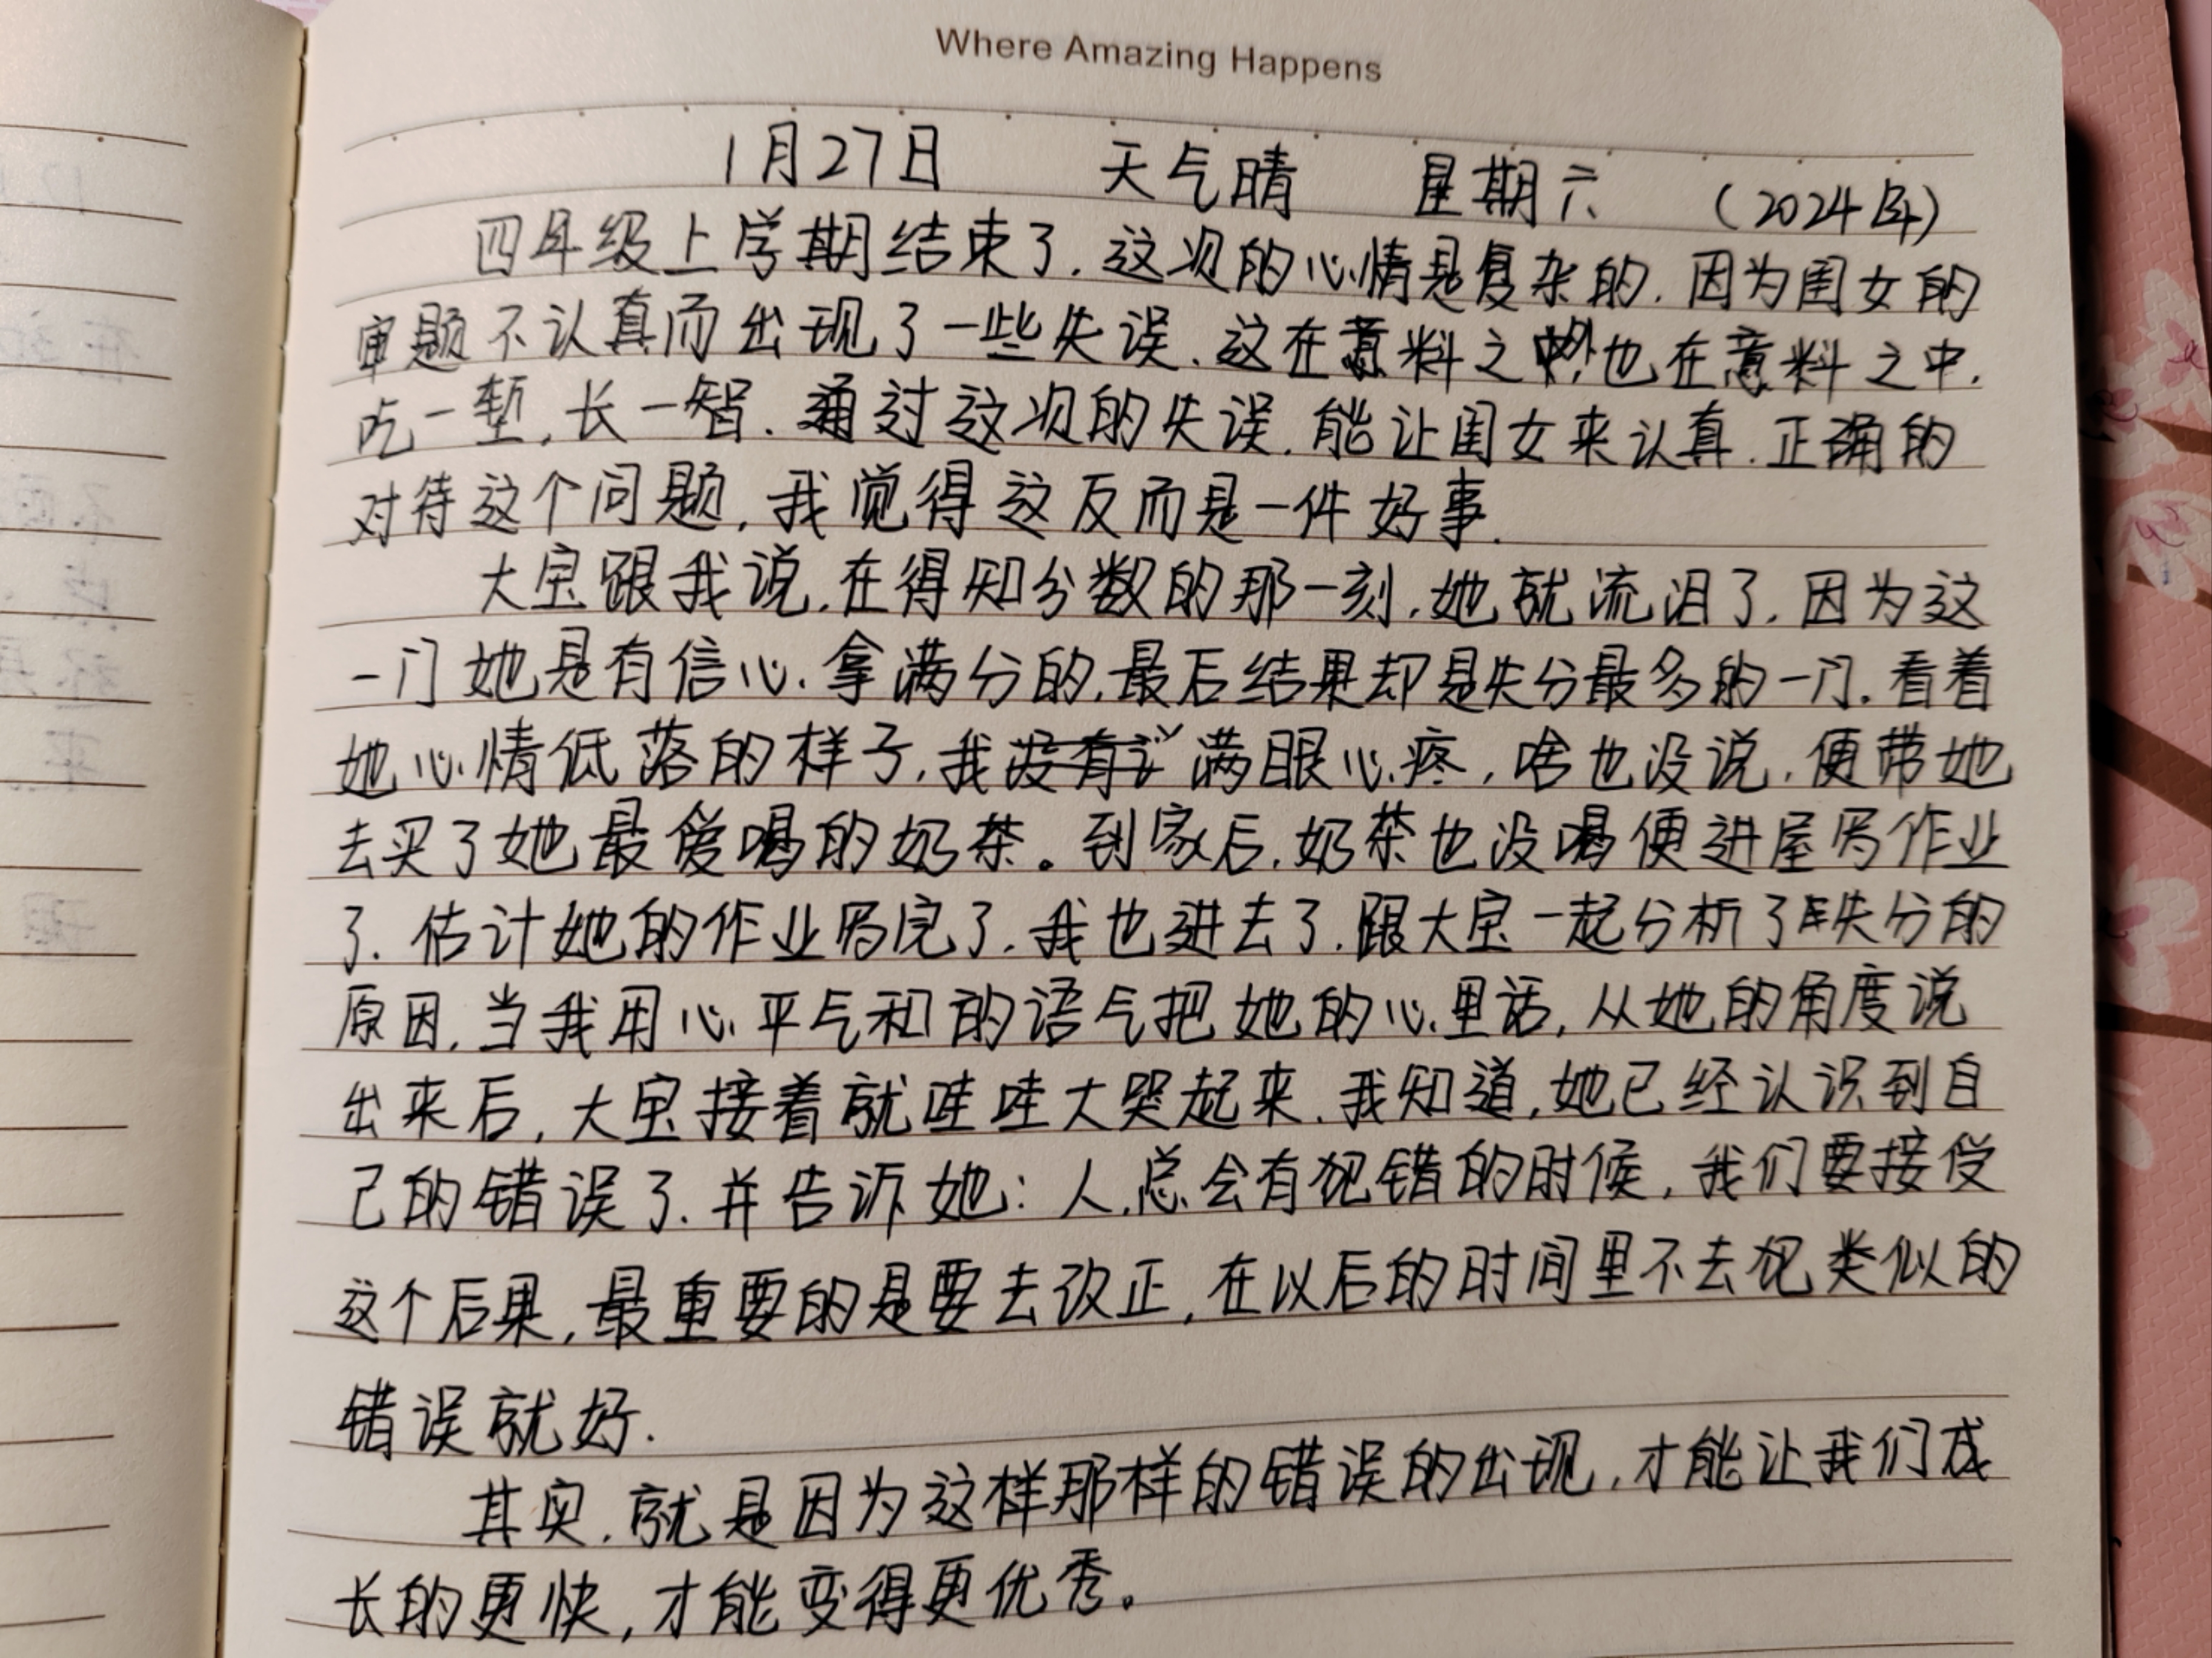 Where Amazing Happens
1月27日 天气晴 星期六 (2024年)
四年级上学期结束了.这次的心情是复杂的.因为闺女的
审题不认真而出现了一些失误.这在意料之外,也在意料之中.
吃一堑,长一智.通过这次的失误.能让闺女来认真.正确的
对待这个问题,我觉得这反而是一件好事.
大宝跟我说.在得知分数的那一刻.她就流泪了.因为这
一门她是有信心.拿满分的.最后结果却是失分最多的一门.看着
她心情低落的样子.我满眼心疼,啥也没说.便带她
去买了她最爱喝的奶茶。到家后.奶茶也没喝便进屋写作业
了.估计她的作业写完了.我也进去了.跟大宝一起分析了失分的
原因.当我用心平气和的语气把她的心里话,从她的角度说
出来后,大宝接着就哇哇大哭起来.我知道,她已经认识到自
己的错误了.并告诉她:人总会有犯错的时候,我们要接受
这个后果,最重要的是要去改正,在以后的时间里不去犯类似的
错误就好.
其实.就是因为这样那样的错误的出现,才能让我们成
长的更快,才能变得更优秀。